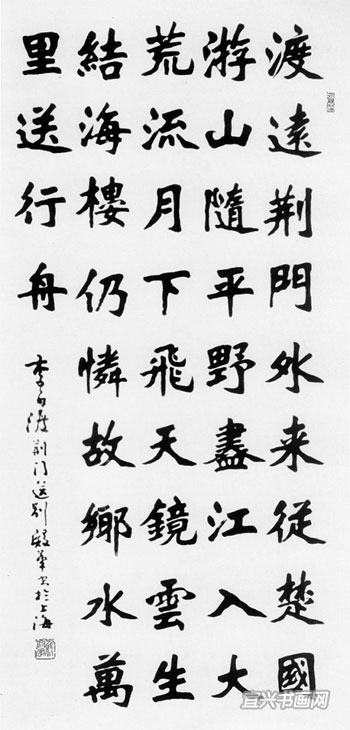 渡遠荆門外来從楚國
游山隨平野盡江入大
荒流月下飛天鏡雲生
結海樓仍憐故鄉水萬
里送行舟
李白渡荆门送别 书於上海
宜兴书画网